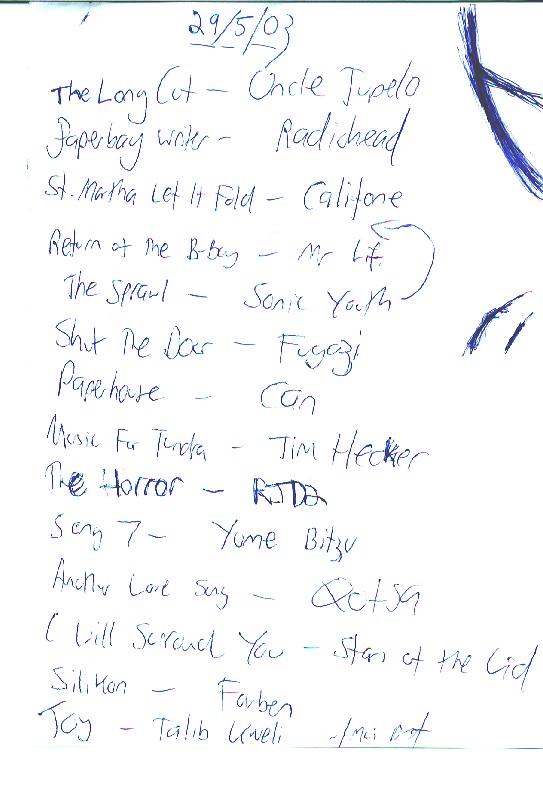 29/5/03
The Long Cut - Uncle Tupelo
Paperbag Writer - Radiohead
St. Martha Let It Fold - Califone
Return of the B-boy - Mr Lif
The Sprawl - Sonic Youth
Shut The Door - Fugazi
Paperhouse - Can
Music For Tundra - Jim Hecker
The Horror - RJD2
Song 7 - Yume Bitsu
Another Love Song - Qotsa
I Will Surround You - Stars of the Lid
Silikon - Farben
Joy - Talib Kweli - / Mos Def